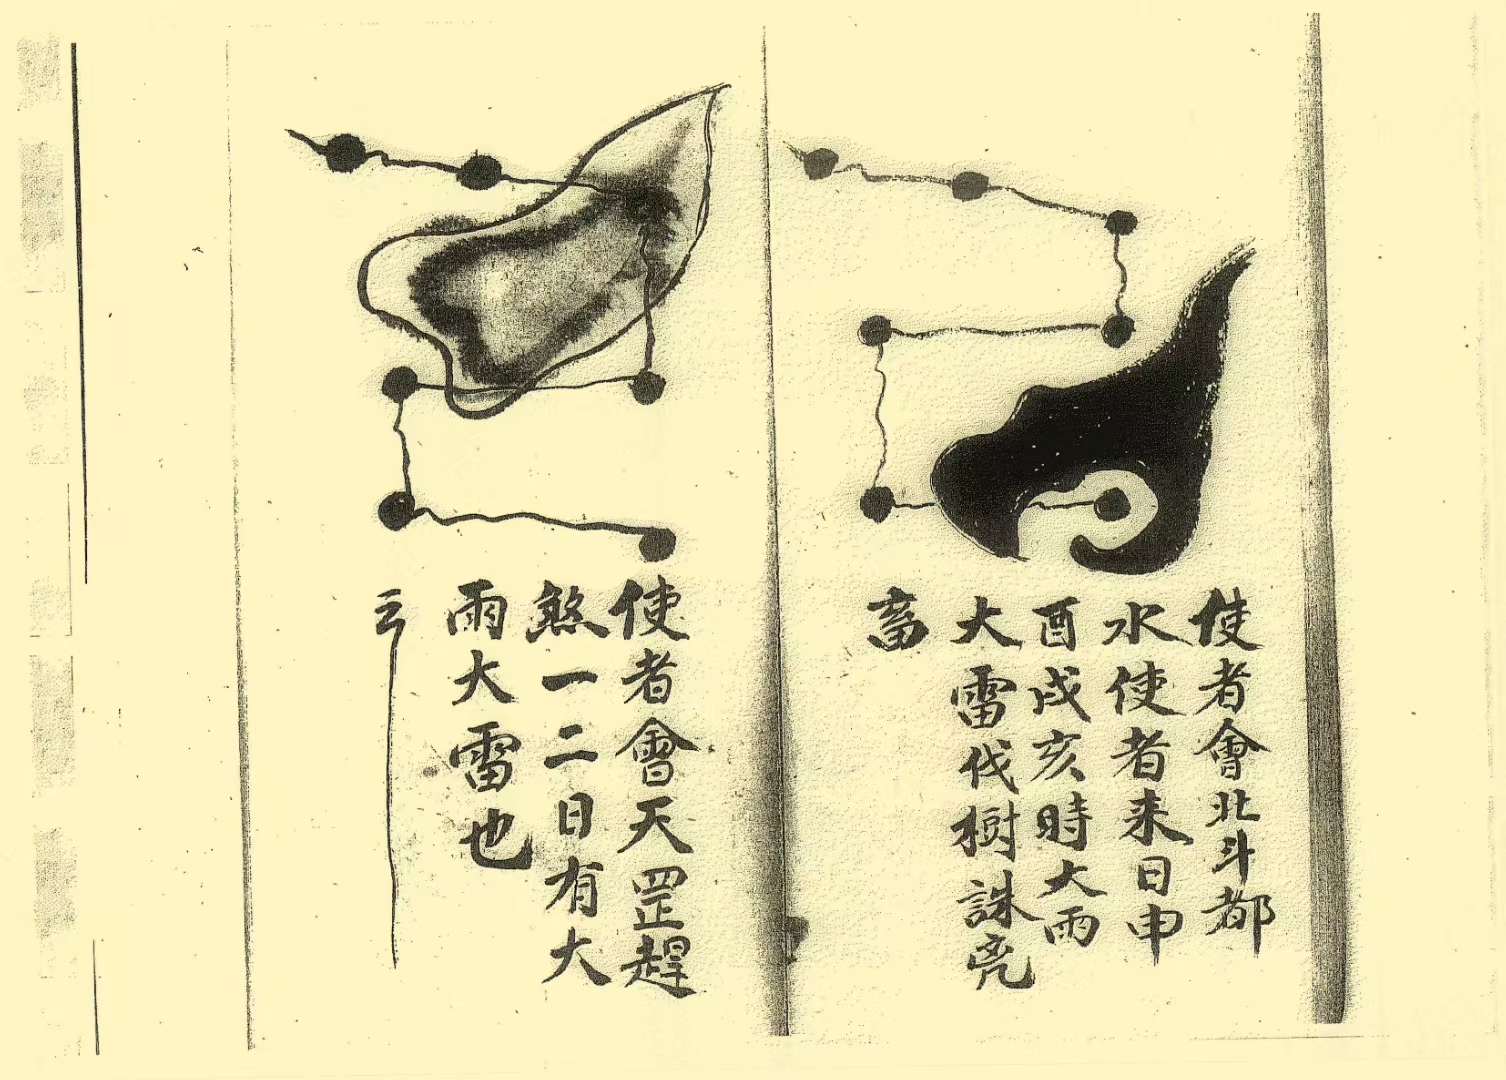 使者會北斗都
水使者来日申
酉戌亥時大雨
大雷伐樹誅
畜
使者會天罡趕
煞一二日有大
雨大雷也